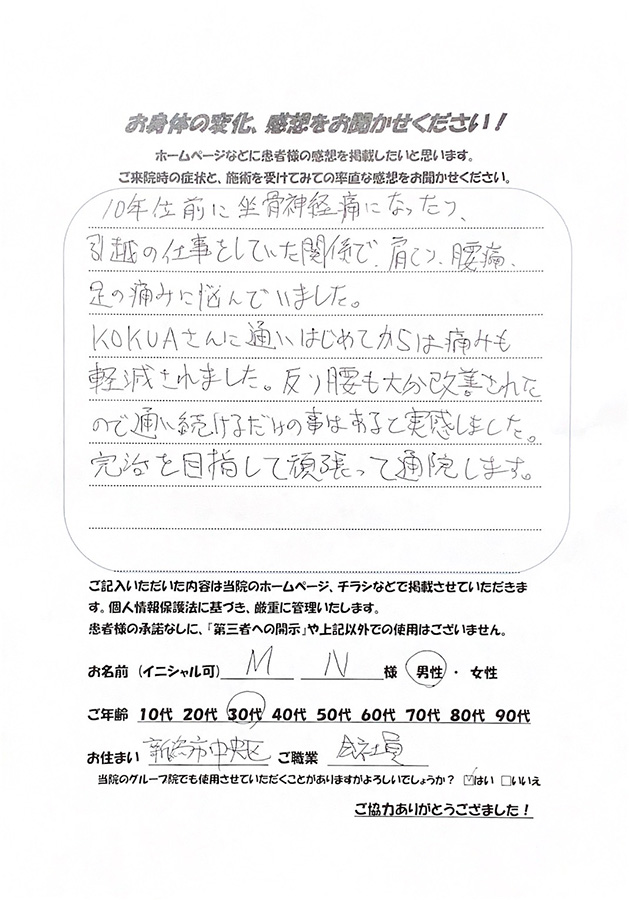 お身体の変化、感想をお聞かせください！
ホームページなどに患者様の感想を掲載したいと思います。
ご来院時の症状と、施術を受けてみての率直な感想をお聞かせください。
10年位前に坐骨神経痛になったり、
引越の仕事をしていた関係で、肩こり、腰痛、
足の痛みに悩んでいました。
KOKUAさんに通いはじめてからは痛みも
軽減されました。反り腰も大分改善された
ので通い続けるだけの事はあると実感しました。
完治を目指して頑張って通院します。
ご記入いただいた内容は当院のホームページ、チラシなどで掲載させていただきま
す。個人情報保護法に基づき、厳重に管理いたします。
患者様の承諾なしに、「第三者への開示」や上記以外での使用はございません。
お名前（イニシャル可） M N 様 男性・女性
ご年齢 10代 20代 30代 40代 50代 60代 70代 80代 90代
お住まい 新潟市中央区 ご職業 会社員
当院のグループ院でも使用させていただくことがありますがよろしいでしょうか？ ☑はい □いいえ
ご協力ありがとうござました！